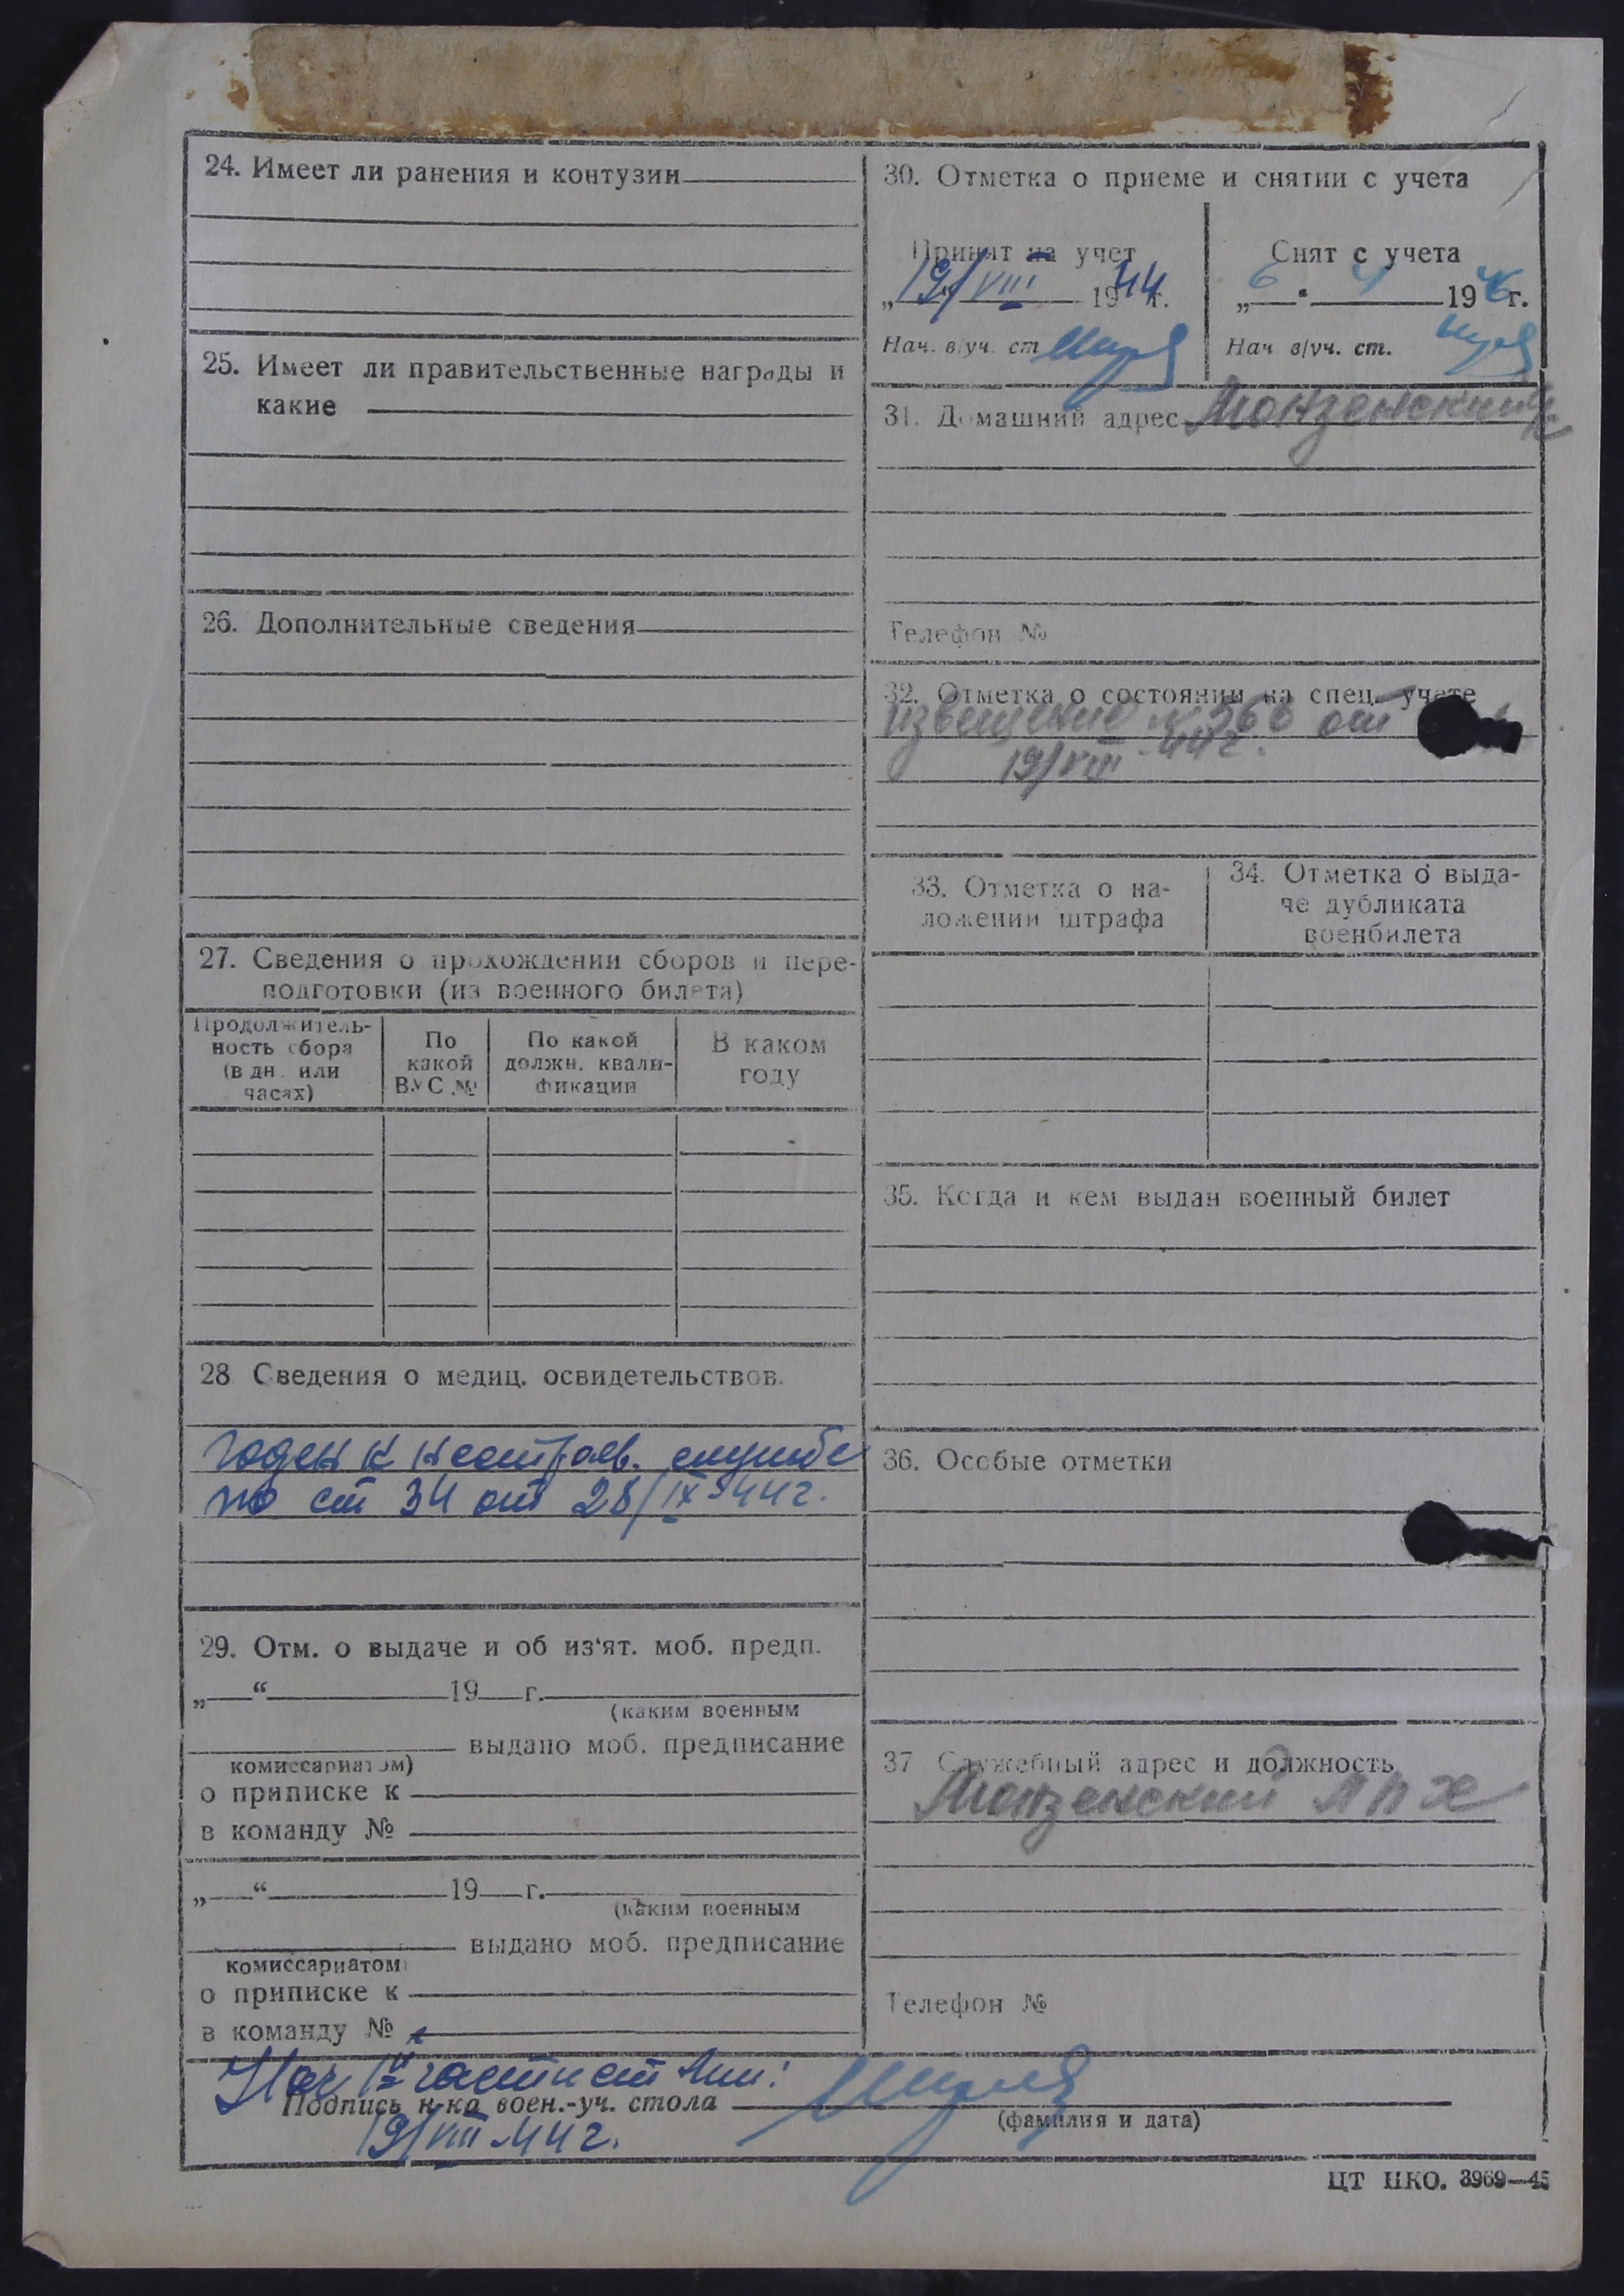 24. Имеет ли ранения и контузии
25. Имеет ли правительственные награды и
какие
26. Дополнительные сведения
27. Сведения о прохождении сборов и пере-
подготовки (из военного билета)
Продолжитель-
ность сбора
(в дн. или
часах)
По
какой
ВУС №
По какой
должн. квали-
фикации
В каком
году
28 Сведения о медиц. освидетельствов.
Годен к нестроев. службе
по ст 34 от 28/IX-44 г.
29. Отм. о выдаче и об из'ят. моб. предп.
„ “ 19 г.
(каким военным
выдано моб. предписание
комиссариатом)
о приписке к
в команду №
„ “ 19 г.
(каким военным
выдано моб. предписание
комиссариатом)
о приписке к
в команду №
30. Отметка о приеме и снятии с учета
Принят на учет
„19/VIII 1944 г.
Нач. в/уч. ст
Снят с учета
„6 " 4 1946 г.
Нач в/уч. ст.
31. Домашний адрес Монзенский
Телефон №
32. Отметка о состоянии на спец. учете
извещение № 366 от
19/VIII-44 г.
33. Отметка о на-
ложении штрафа
34. Отметка о выда-
че дубликата
военбилета
35. Когда и кем выдан военный билет
36. Особые отметки
37 Служебный адрес и должность
Монзенский ЛПХ
Телефон №
Нач части ст
Подпись н-ка воен.-уч. стола
(фамилия и дата)
19/VIII-44 г.
ЦТ НКО. 3969—45